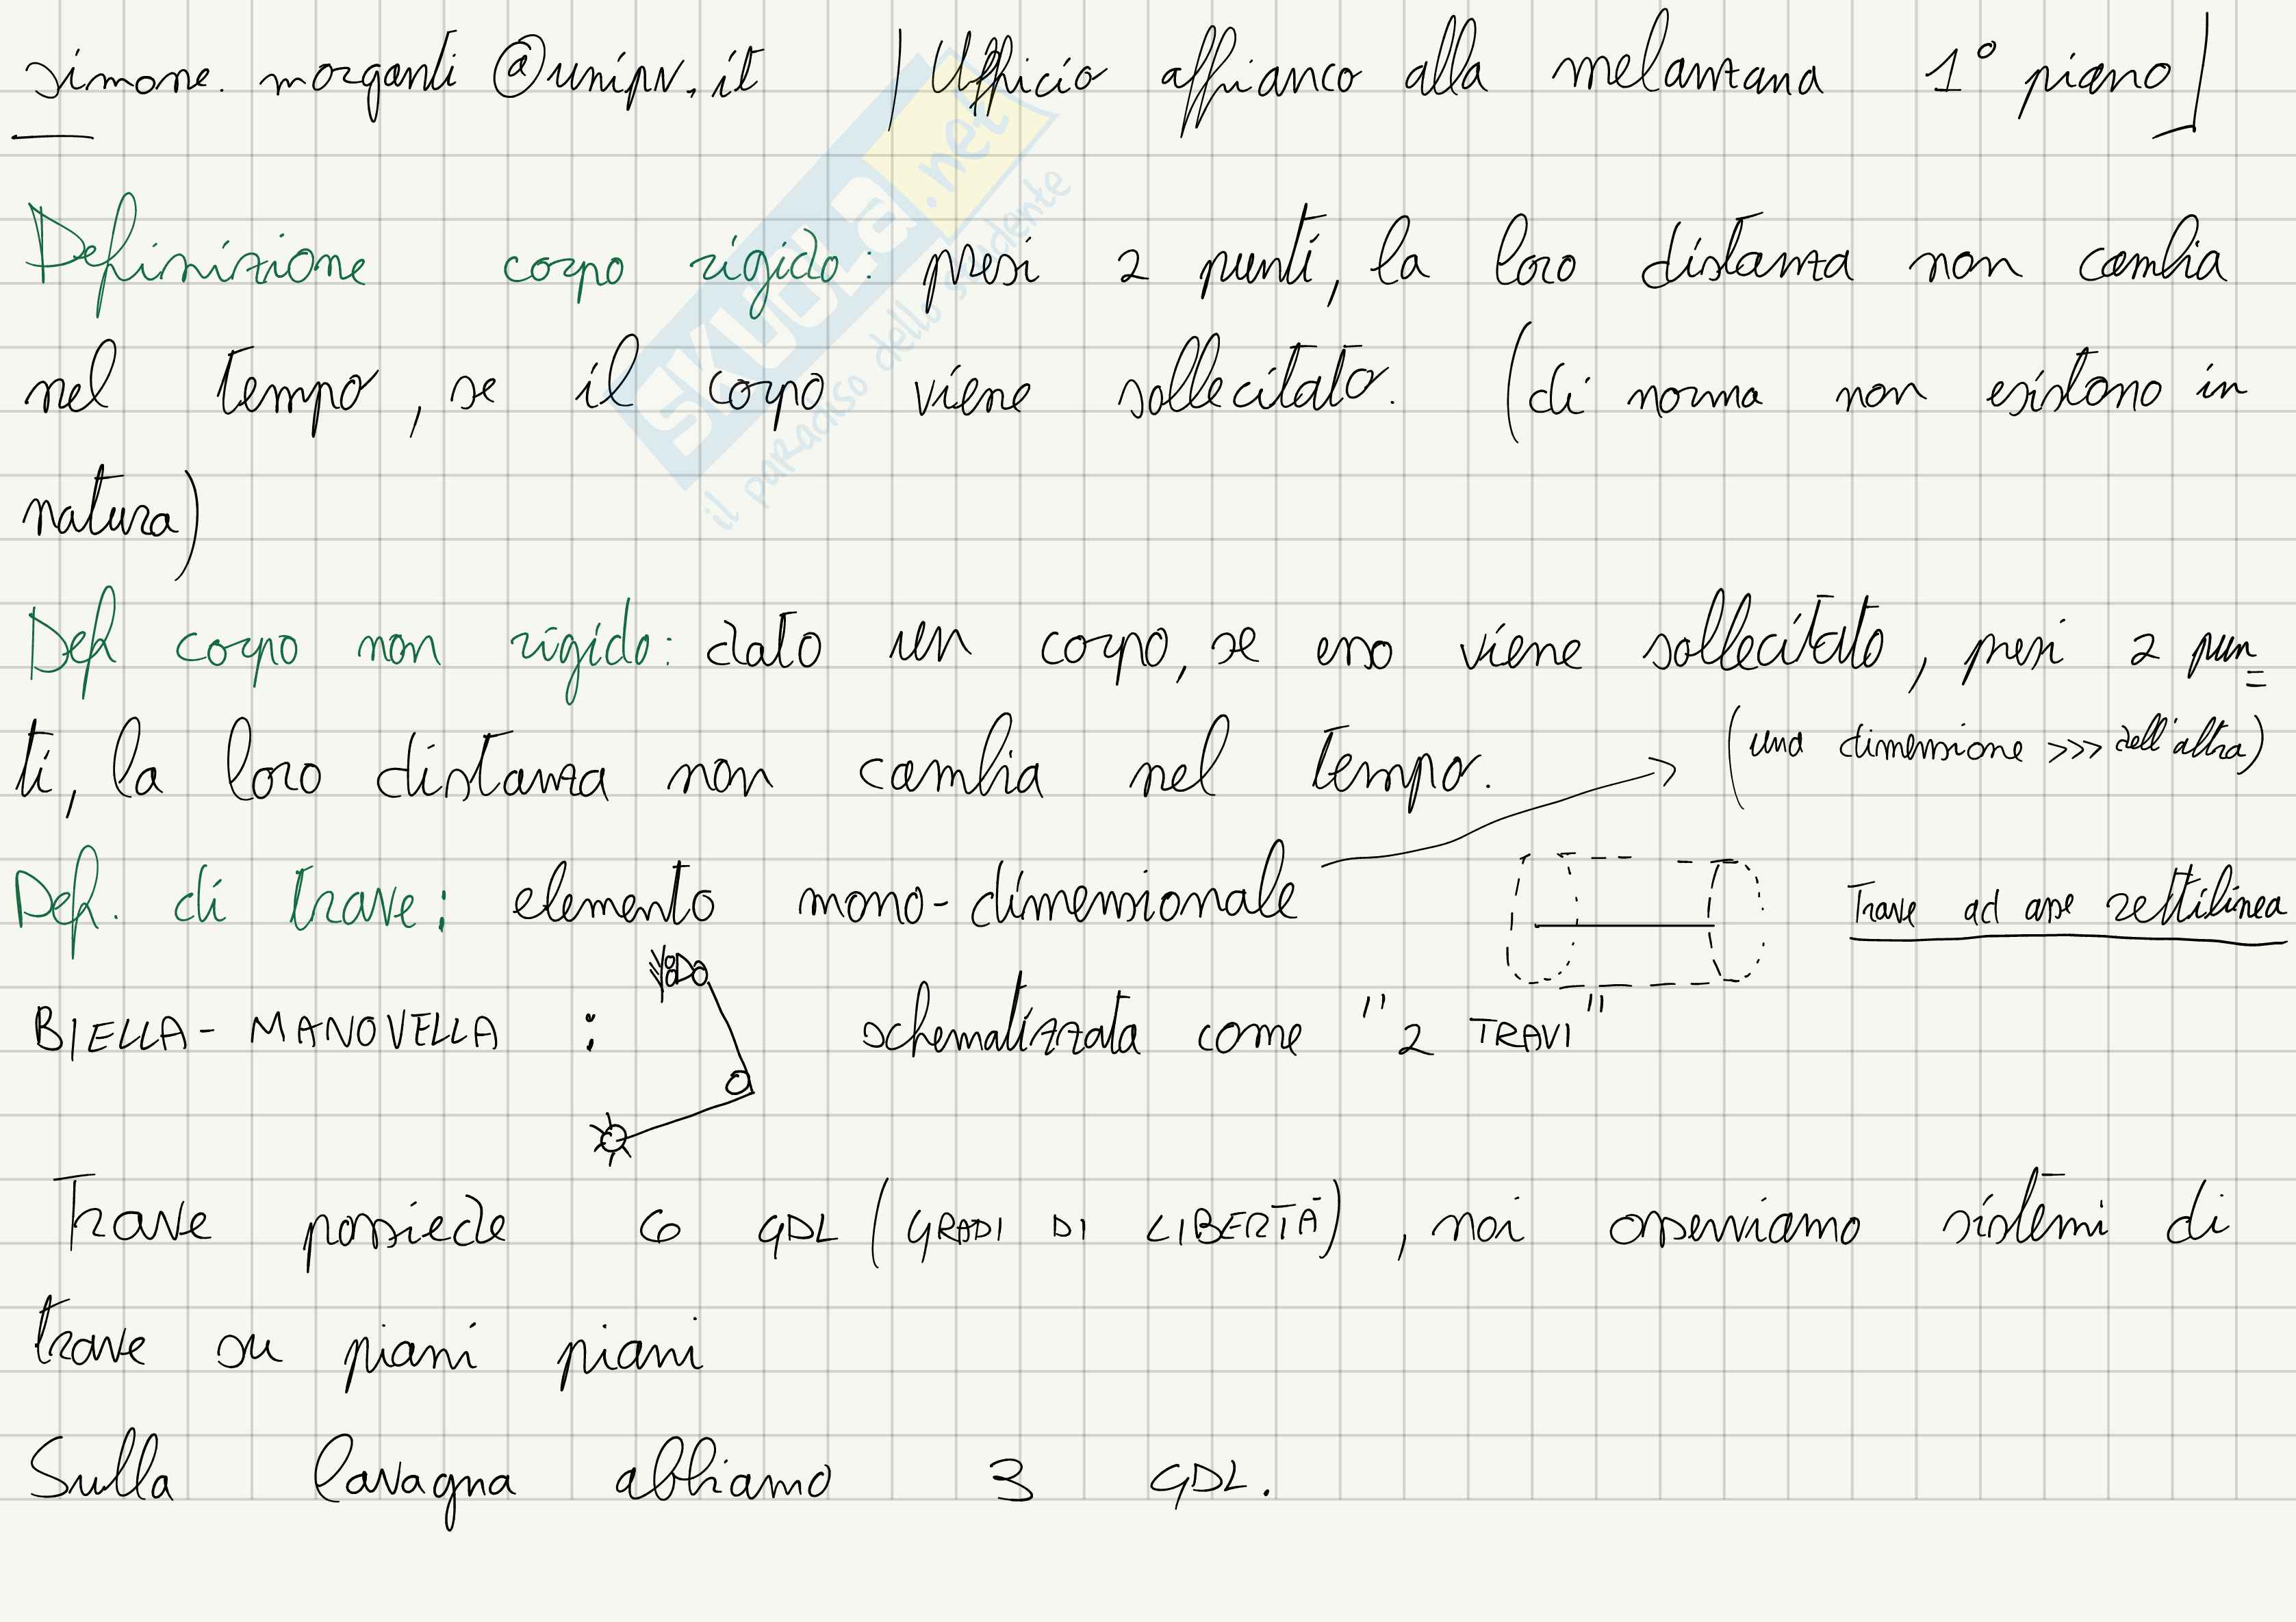 simone.morganti@unipv.it | Ufficio affianco alla melanzana 1° piano |
Definizione corpo rigido: presi 2 punti, la loro distanza non cambia
nel tempo, se il corpo viene sollecitato. (di norma non esistono in
natura)
Def corpo non rigido: dato un corpo, se esso viene sollecitato, presi 2 pun=
ti, la loro distanza non cambia nel tempo.
(una dimensione >>> dell'altra)
Def. di trave: elemento mono-dimensionale
Trave ad asse rettilinea
BIELLA-MANOVELLA : schematizzata come "2 TRAVI"
Trave possiede 6 GDL (GRADI DI LIBERTÀ), noi osserviamo sistemi di
trave su piani piani
Sulla lavagna abbiamo 3 GDL.
SKUOLA.net
il paradiso dello studente